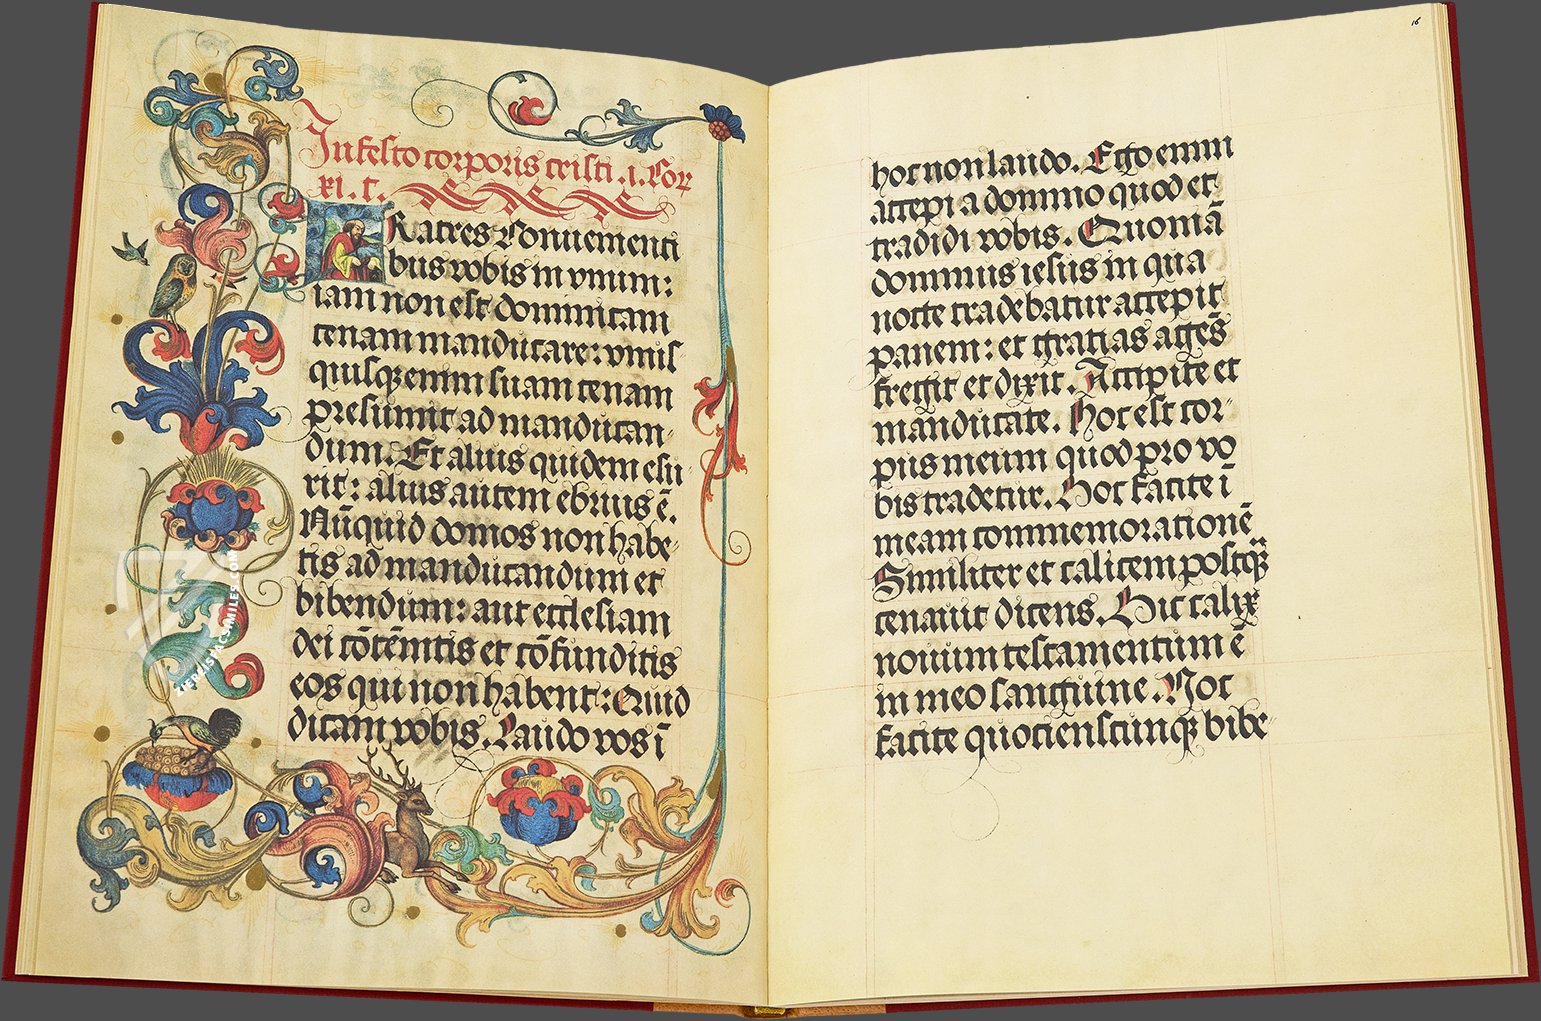 In festo corporis cristi .i. Cor
xi. c.
Fratres Conuenienti
bus vobis in vnum:
iam non est dominicam
cenam manducare: vnus
quisq₃ enim suam cenam
presumit ad manducan-
dum. Et alius quidem esu-
rit: alius autem ebrius ē.
Nūquid domos non habe-
tis ad manducandum et
bibendum: aut ecclesiam
dei cōtēnitis et cōfunditis
eos qui non habent: Quid
dicam vobis. Laudo vos ī
TERPASTAGSMILES.COM
16
hoc non laudo. Ego enim
accepi a domino quod et
tradidi vobis. Quoniā
dominus iesus in qua
nocte tradebatur accepit
panem: et gratias agēs
fregit et dixit. Accipite et
manducate. Hoc est cor-
pus meum quod pro vo
bis tradetur. Hoc facite ī
meam commemorationē
Similiter et calicem postq̄₃
cenauit dicens. Hic calix
nouum testamentum ē
in meo sanguine. Hoc
facite quotienscunq₃ bibe-